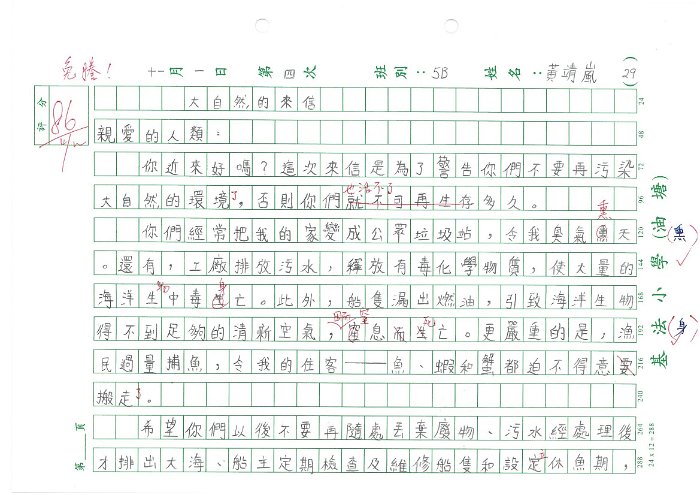 免謄！ 十一月一日 第四次 班別：5B 姓名：黃靖嵐 (29)
評分 86
大自然的來信 24
親愛的人類： 48
你近來好嗎？這次來信是為了警告你們不要再污染 72
也活不了
大自然的環境了，否則你們就不可再生存多久。 96
熏
你們經常把我的家變成公眾垃圾站，令我臭氣燻天 120
。還有，工廠排放污水，釋放有毒化學物質，使大量的 144
物 身
海洋生中毒亡。此外，船隻漏出燃油，引致海洋生物 168
窒 死
得不到足夠的清新空氣，窒息而生亡。更嚴重的是，漁 192
民過量捕魚，令我的住客——魚、蝦和蟹都迫不得意要 216
搬走了。 240
希望你們以後不要再隨處丟棄廢物、污水經處理後 264
立
才排出大海、船主定期檢查及維修船隻和設定休魚期， 288
第 頁
24 x 12 = 288
基法小學（油塘）
熏
身